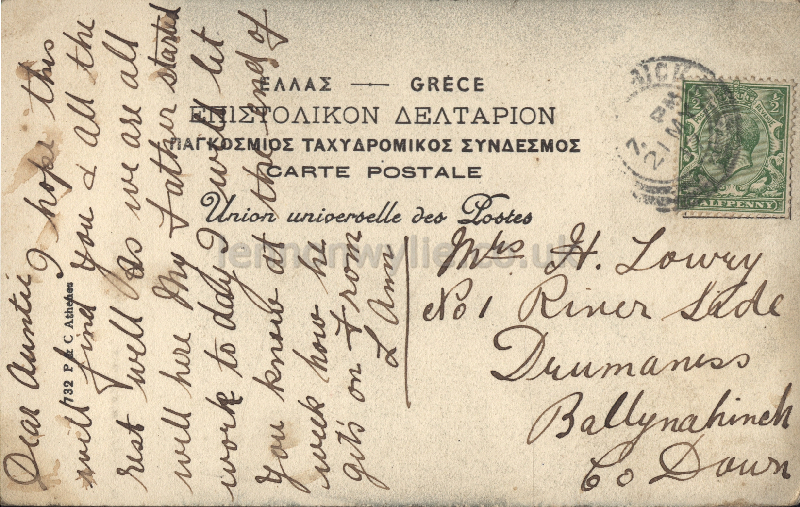 ΕΛΛΑΣ — GRÈCE
ΕΠΙΣΤΟΛΙΚΟΝ ΔΕΛΤΑΡΙΟΝ
ΠΑΓΚΟΣΜΙΟΣ ΤΑΧΥΔΡΟΜΙΚΟΣ ΣΥΝΔΕΣΜΟΣ
CARTE POSTALE
Union universelle des Postes
lennonwylie.co.uk
Dear Auntie I hope this
will find you & all the
rest well as we are all
will here My Father started
work to day I will let
you know at the end of
week how he
gits on From
L Ann
732 P & C Athenes
Mrs H. Lowry
No 1 River Side
Drumaness
Ballynahinch
Co Down
HALFPENNY
21 MA